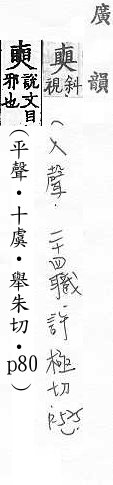 廣韻
斜視(入聲.二十四職.許極切.p525)
說文目邪也(平聲‧十虞‧舉朱切‧p80)